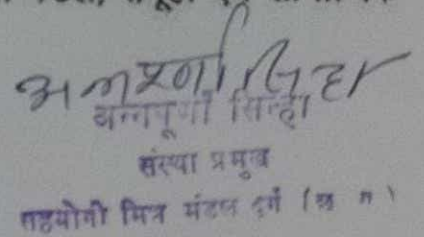 अन्नपूर्णा सिन्हा
अन्नपूर्णा सिन्हा
संस्था प्रमुख
सहयोगी मित्र मंडल दुर्ग (छ ग)